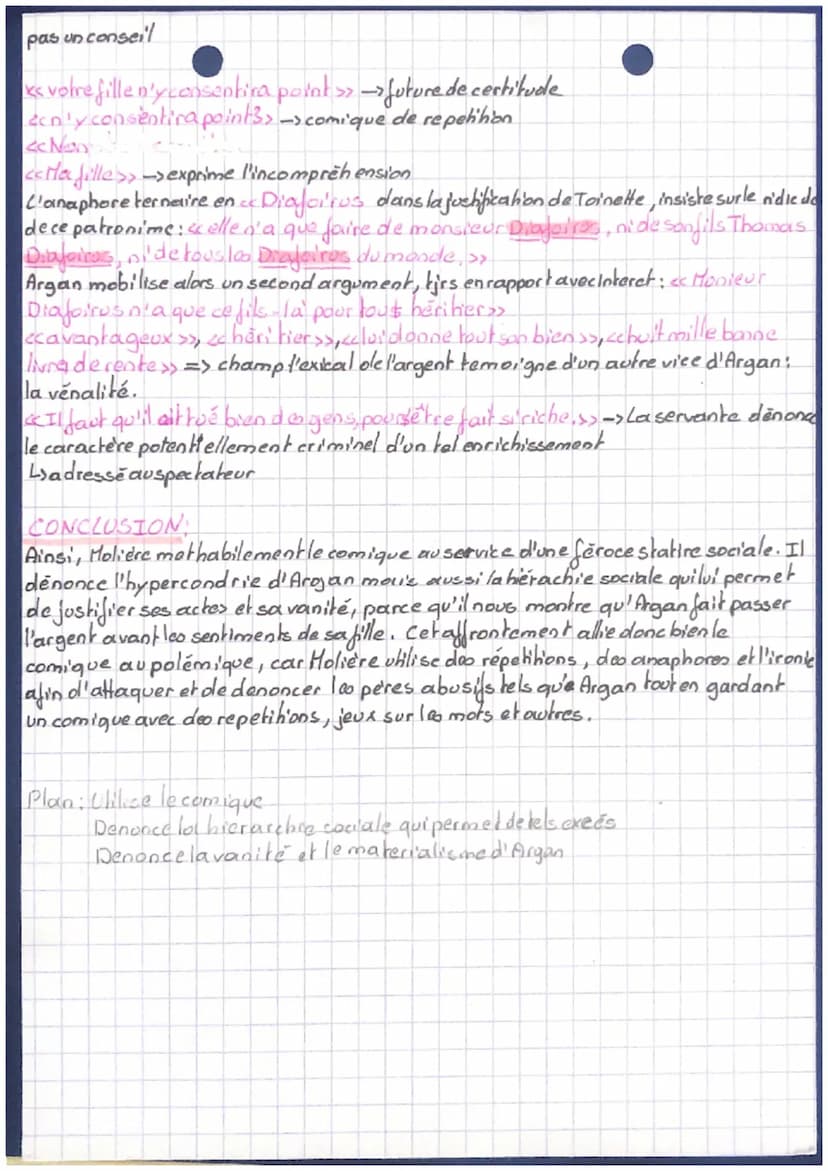 pas un conseil
<< votre fille n'y consentira point >> → future de certitude
<< n'y consentira point >> → comique de repetition
<< Non
<< Ma fille >> → exprime l'incompréhension
L'anaphore ternaire en << Diafoirus dans la justification de Toinette, insiste sur le
de ce patronime : << elle n'a que faire de monsieur Diafoirus, ni de son fils Thomas
Diafoirus, ni de tous les Diafoirus du monde, >>
Argan mobilise alors un second argument, tjrs en rapport avec Interet : << Monieur
Diafoirus n'a que ce fils-là pour tout héritier >>
<< avantageux >>, << héritier >>, << lui donne tout son bien >>, << huit mille bonne
livre de rente >> => champ l'exical de l'argent temoigne d'un autre vice d'Argan :
la vénalité.
<< Il faut qu'il ait tué bien des gens, pour s'être fait si riche, >> → La servante dénonc
le caractère potentiellement criminel d'un tel enrichissement
↳ adressé au spectateur
CONCLUSION :
Ainsi, Molière met habilement le comique au service d'une féroce statire sociale. Il
dénonce l'hypercondrie d'Argan mais aussi la hiérachie sociale qui lui permet
de justifier ses actes et sa vanité, parce qu'il nous montre qu'Argan fait passer
l'argent avant les sentiments de sa fille. Cet affrontement allie donc bien le
comique au polémique, car Molière utilise des répetitions, des anaphores et l'ironie
afin d'attaquer et de denoncer les pères abusifs tels qu'e Argan tout en gardant
un comique avec des repetitions, jeux sur les mots et autres.
Plan : Utilise le comique
Denonce la hierarchie sociale qui permet de tels excés
Denonce la vanité et le materialisme d'Argan